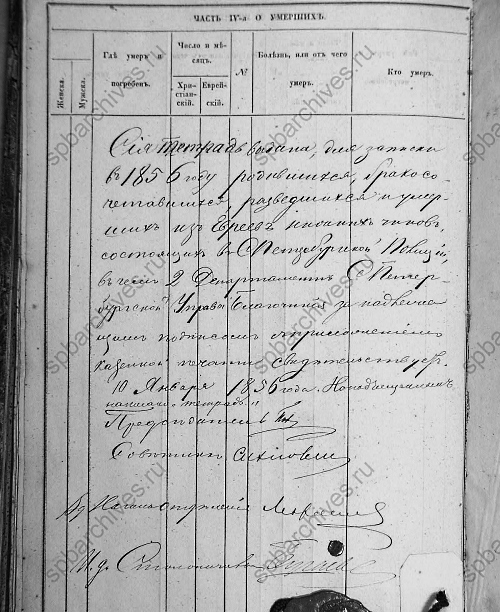 ЧАСТЬ IV-я О УМЕРШИХЪ.
Женска.
Мужска.
Гдѣ умеръ и погребенъ.
Число и мѣсяцъ.
Христіанскій.
Еврейскій.
№
Болѣзнь, или отъ чего умеръ.
Кто умеръ.
Сія тетрадь выдана, для записки
въ 1856 году родившихся, бракосо-
четавшихся, разведшихся и умер-
шихъ изъ Евреевъ нижнихъ чиновъ,
состоящихъ въ С Петербургской Полиціи,
въ чемъ 2 Департаментъ С Петер-
бургской Управы Благочинія за надлежа
щимъ подписомъ и приложеніемъ
казенной печати свидѣтельствуетъ.
10 Января 1856 года.
тетрадь"
Предсѣдатель
Совѣтникъ
Столоначальника
spbarchives.ru